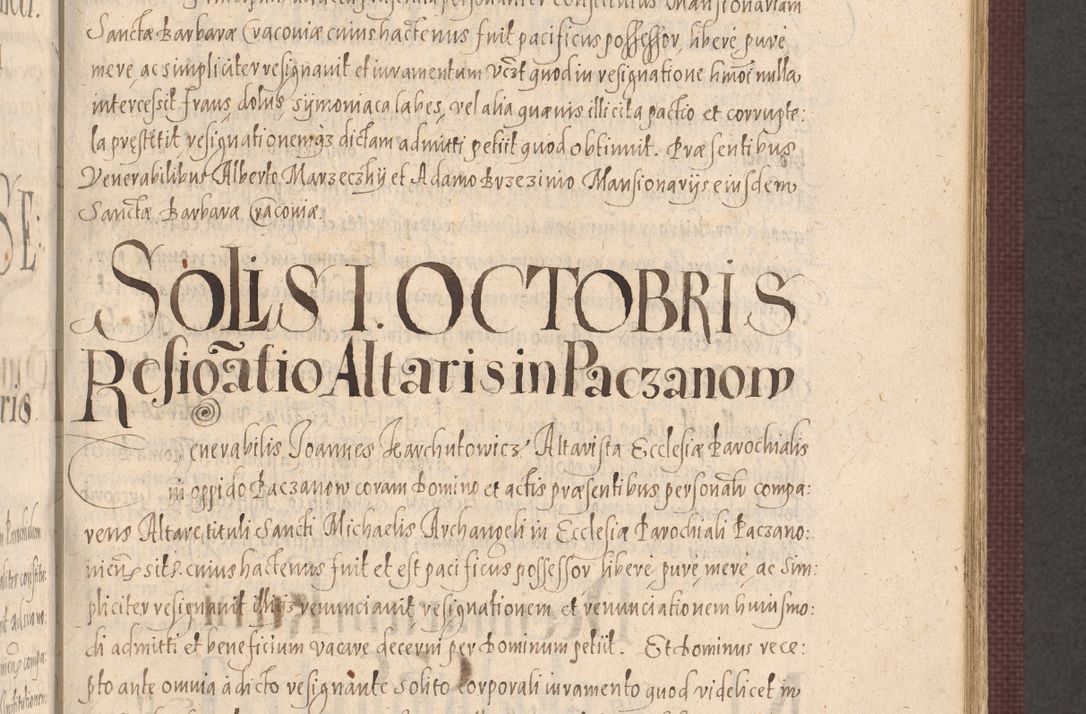 Sanctæ Barbaræ Cracoviæ cuius hactenus fuit pacificus possessor, liberè, purè
merè, ac simpliciter resignavit et iuramentum vczt quod in resignatione hmoi nulla
intercessit fraus, dolus, symoniaca labes, vel alia quævis illicita pactio et corrupte:
la præstitit resignationemqз dictam admitti petiit quod obtinuit. Præsentibus
Venerabilibus Alberto Marzeczkij et Adamo Brzezinio Mansionarijs eiusdem
Sanctæ Barbaræ Cracoviæ.
SOLIS I. OCTOBRIS
Resigãatio Altaris in Paczanow
Venerabilis Joannes Karchutowicz Altarista Ecclesiæ Parochialis
in oppido Paczanow coram Domino et actis præsentibus personalr compa:
rens Altare tituli Sancti Michaelis Archangeli in Ecclesia Parochiali Paczano:
vien sit. cuius hactenus fuit et est pacificus possessor liberè, purè, merè, ac sim:
pliciter resignavit illiqз renunciavit resignationem et renunciationem huiusmo:
di admitti et beneficium vacare decerni per Dominum petiit. Et Dominus rece:
pto ante omnia à dicto resignante solito corporali iuramento quod videlicet in